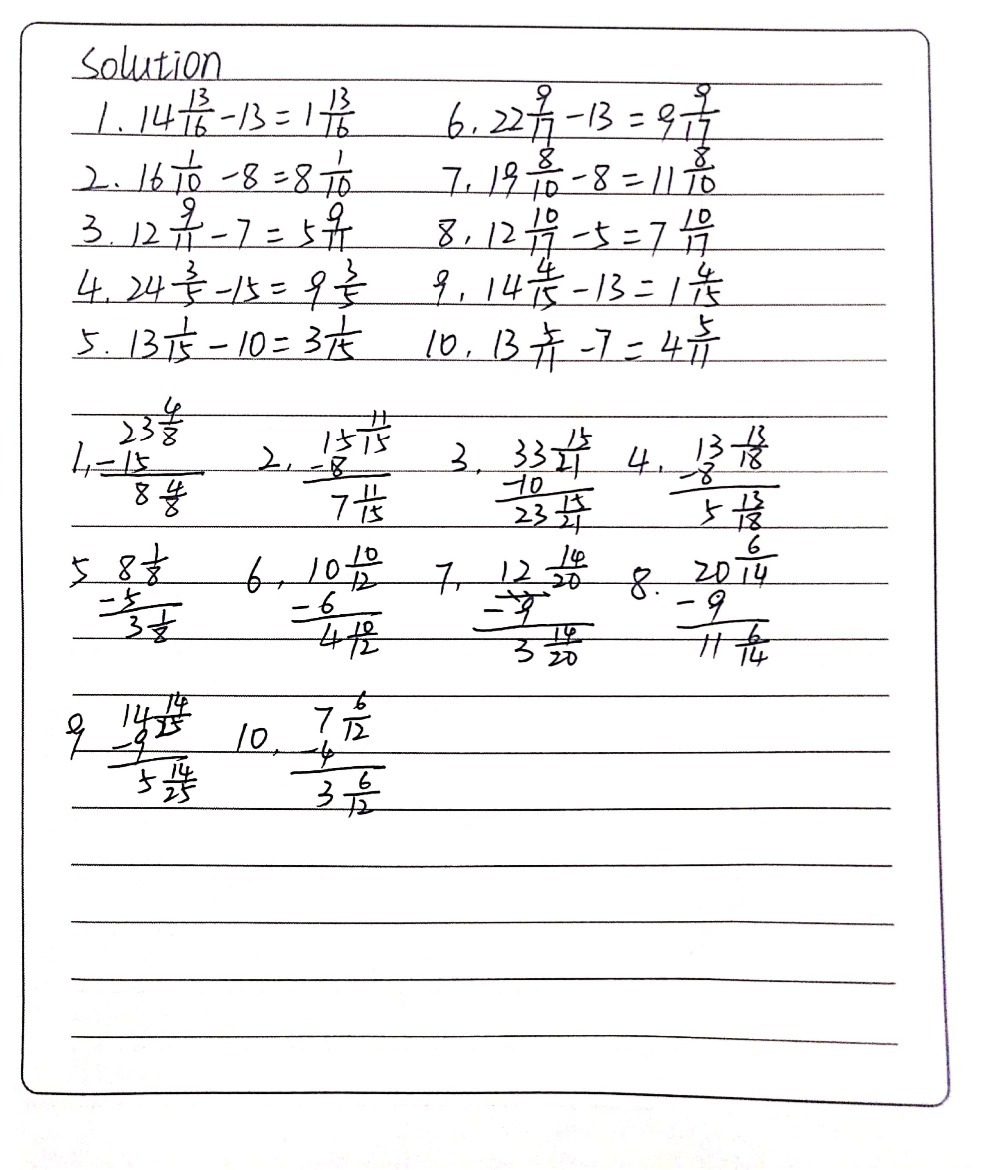 Solution
1. 14 13/16 - 13 = 1 13/16 6. 22 9/17 - 13 = 9 9/17
2. 16 1/10 - 8 = 8 1/10 7. 19 8/10 - 8 = 11 8/10
3. 12 9/11 - 7 = 5 9/11 8. 12 10/17 - 5 = 7 10/17
4. 24 3/5 - 15 = 9 3/5 9. 14 4/15 - 13 = 1 4/15
5. 13 1/15 - 10 = 3 1/15 10. 13 5/11 - 7 = 4 5/11
1. 23 4/8 2. 15 11/15 3. 33 15/21 4. 13 13/18
-15 -8 -10 -8
8 4/8 7 11/15 23 15/21 5 13/18
5 8 1/8 6. 10 10/12 7. 12 14/20 8. 20 6/14
-5 -6 -9 -9
3 1/8 4 10/12 3 14/20 11 6/14
9 14 14/25 10. 7 6/12
-9 -4
5 14/25 3 6/12